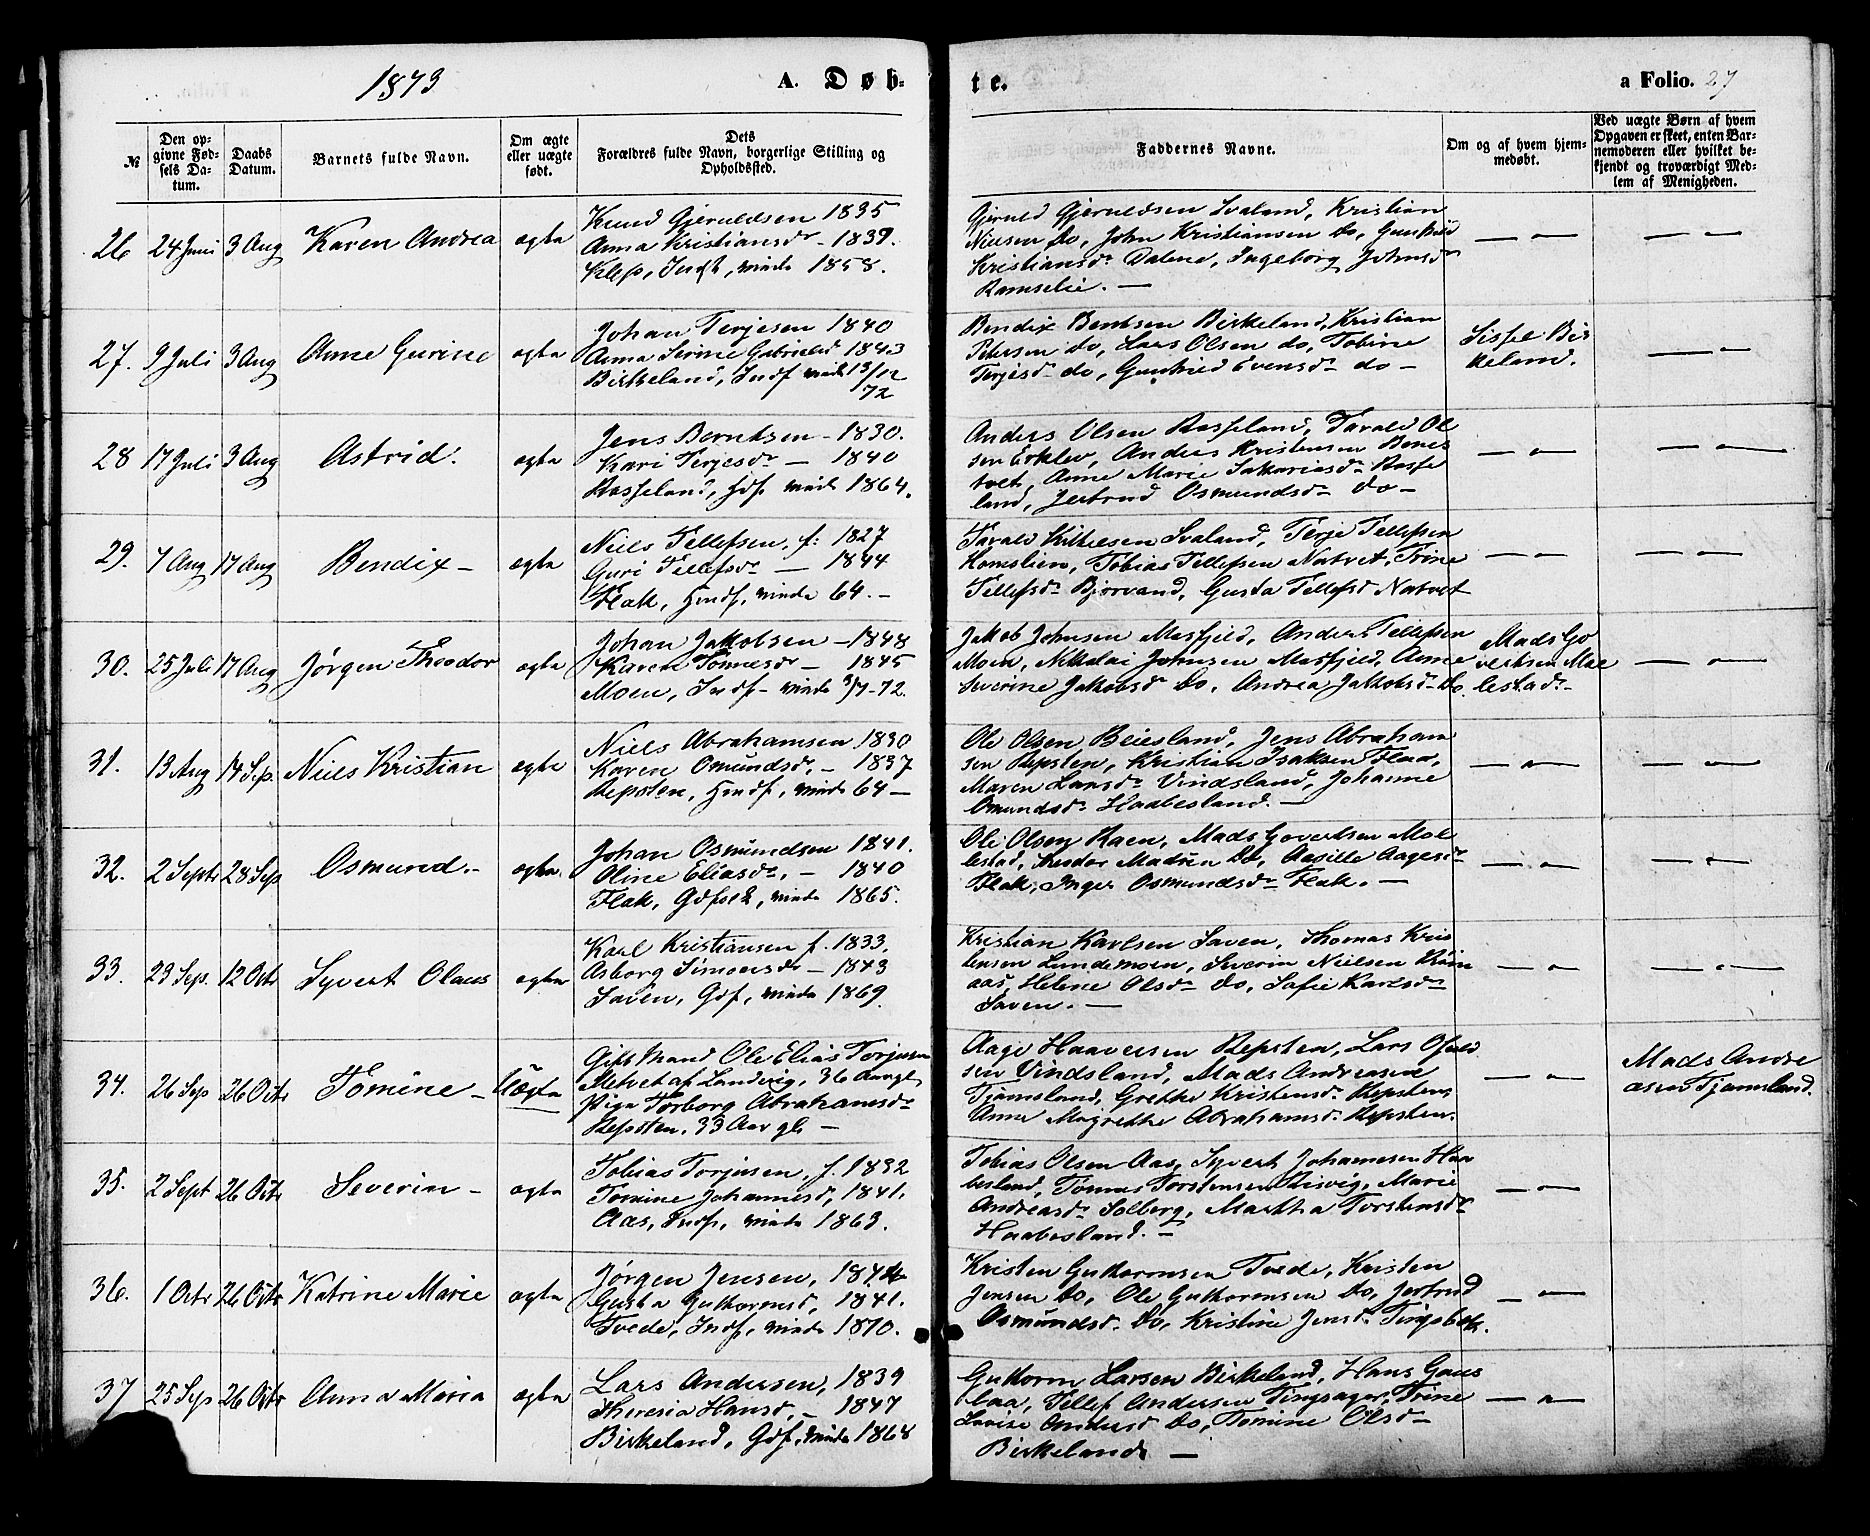 1873
A. Døb-
te.
a Folio. 27
№
Den opgivne Fødsels Datum.
Daabs Datum.
Barnets fulde Navn.
Om ægte eller uægte født.
Dets Forældres fulde Navn, borgerlige Stilling og Opholdssted.
Faddernes Navne.
Om og af hvem hjemmedøbt.
Ved uægte Børn af hvem Opgaven er skeet, enten Barnemoderen eller hvilket bekjendt og troværdigt Medlem af Menigheden.
26 24 Juni 3 Aug Karen Andrea ægte
Knud Gjeruldsen 1835
Anna Kristiansd. - 1839.
Klep, Indst, viede 1858.
Gjeruld Gjeruldsen Svaland, Kristian
Nielsen do, John Kristiansen do, Gunhild
Kristiansd. Dalene, Ingeborg Johnsd.
Ramselie. —
27. 9 Juli 3 Aug Anne Gurine ægte
Johan Terjesen 1840
Anna Serine Gabrielsd 1843
Birkeland, Indf viede 13/12
72
Bendix Bentsen Birkeland, Kristian
Petersen do, Lars Olsen do, Tobine
Terjesd. do, Gunhild Evensd. do —
Sissel Bir
keland.
28 17 Juli 3 Aug Astrid. ægte
Jens Berntsen - 1830.
Kari Terjesd. — 1840
Rosseland, Gdf. viede 1864.
Anders Olsen Rosseland, Tarald Ol
sen Erklev, Anders Kristensen Benes
tvet, Anne Marie Sakariasd. Rosse
land, Jertrud Osmundsd. do —
29. 7 Aug 17 Aug Bendix — ægte
Niels Tellefsen, f: 1827
Guri Tellefsd. — 1844
Flak, Hmdf, viede 64. —
Tarald Kittelsen Svaland, Terje Tellefsen
Homslien, Tobias Tellefsen Natvet, Trine
Tellefsd. Bjorvand, Gusta Tellefsd Natvet
30. 25 Juli 17 Aug Jørgen Theodor ægte
Johan Jakobsen — 1848
Karen Tønnesd. — 1845
Moen, Indf — viede 3/7-72.
Jakob Johnsen Mosfjeld, Anders Tellefsen
Moen, Nikolai Johnsen Mosfjeld, Anne
Severine Jakobsd do, Andrea Jakobsd. do.
Mads Go
vertsen Mol
lestad. —
31. 13 Aug 14 Sep. Niels Kristian ægte
Niels Abrahamsen 1830
Karen Omundsd. — 1837
Repsten, Hmdf, viede 64 —
Ole Olsen Beiesland, Jens Abraham
sen Repsten, Kristian Isaksen Flaa,
Maren Larsd. Vindsland, Johanne
Omundsd. Haabesland. —
32. 2 Septr 28 Sep Osmund. — ægte.
Johan Osmundsen 1841.
Oline Eliasd. — 1840
Flak, Gdfolk, viede 1865.
Ole Olsen Raen, Mads Govertsen Mol
lestad, Theodor Madsen do, Aasille Aagesd.
Flak, Inger Osmundsd. Flak. —
33. 23 Sep. 12 Octr Syvert Olaus ægte
Karl Kristiansen f. 1833,
Asborg Simonsd. — 1843
Saven, Gdf, viede 1869.
Kristian Karlsen Saven, Thomas Kris
tensen Lundemoen, Severin Nielsen Røin
aas, Helene Olsd. do, Sofie Karlsd.
Saven. —
34. 26 Sep 26 Octr Tomine — Uægte
Gift Mand Ole Elias Torjusen
Metvet af Landvig, 36 Aar gl,
Pige Torborg Abrahamsd.
Repsten, 33 Aar gl. —
Aage Haaversen Repsten, Lars Osuld
sen Vindsland, Mads Andreasen
Tjamsland, Grethe Kristensd. Repsten,
Anne Margrethe Abrahamsd. Repsten.
Mads Andre
asen Tjamsland.
35. 2 Sept 26 Octr Severin — ægte
Tobias Torjusen, f. 1832
Tomine Johannesd, 1841.
Aas, Indf, viede 1863.
Tobias Olsen Aas, Syvert Johannesen Haa
besland, Tønnes Torstensen Risvig, Marie
Andreasd. Solberg, Martha Torstensd.
Haabesland. —
36. 1 Octr 26 Octr Katrine Marie ægte
Jørgen Jensen, 1844
Gusta Guttormsd, 1841.
Tvede, Indf, viede 1870.
Kristen Guttormsen Tvede, Kristen
Jensen do, Ole Guttormsen do, Jertrud
Osmundsd. do, Kristine Jensd. Tingsbek.
37 25 Sep 26 Octr Anna Maria ægte
Lars Andersen, 1839
Theresia Hansd, — 1847
Birkeland, Gdf, viede 1868
Guttorm Larsen Birkeland, Hans Gaus
laa, Tellef Andersen Tingsager, Trine
Lovise Andersd do, Tomine Olsd —
Birkeland. —